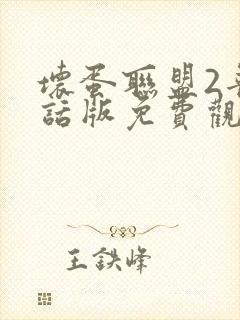 壞蛋聯盟2
話版免費觀
王鉄峰